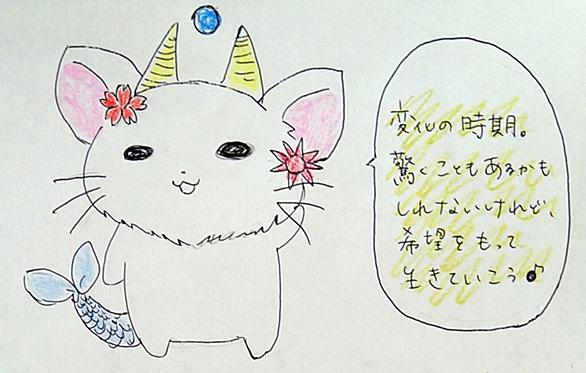 変化の時期。
驚くこともあるかも
しれないけれど、
希望をもって
生きていこう♪